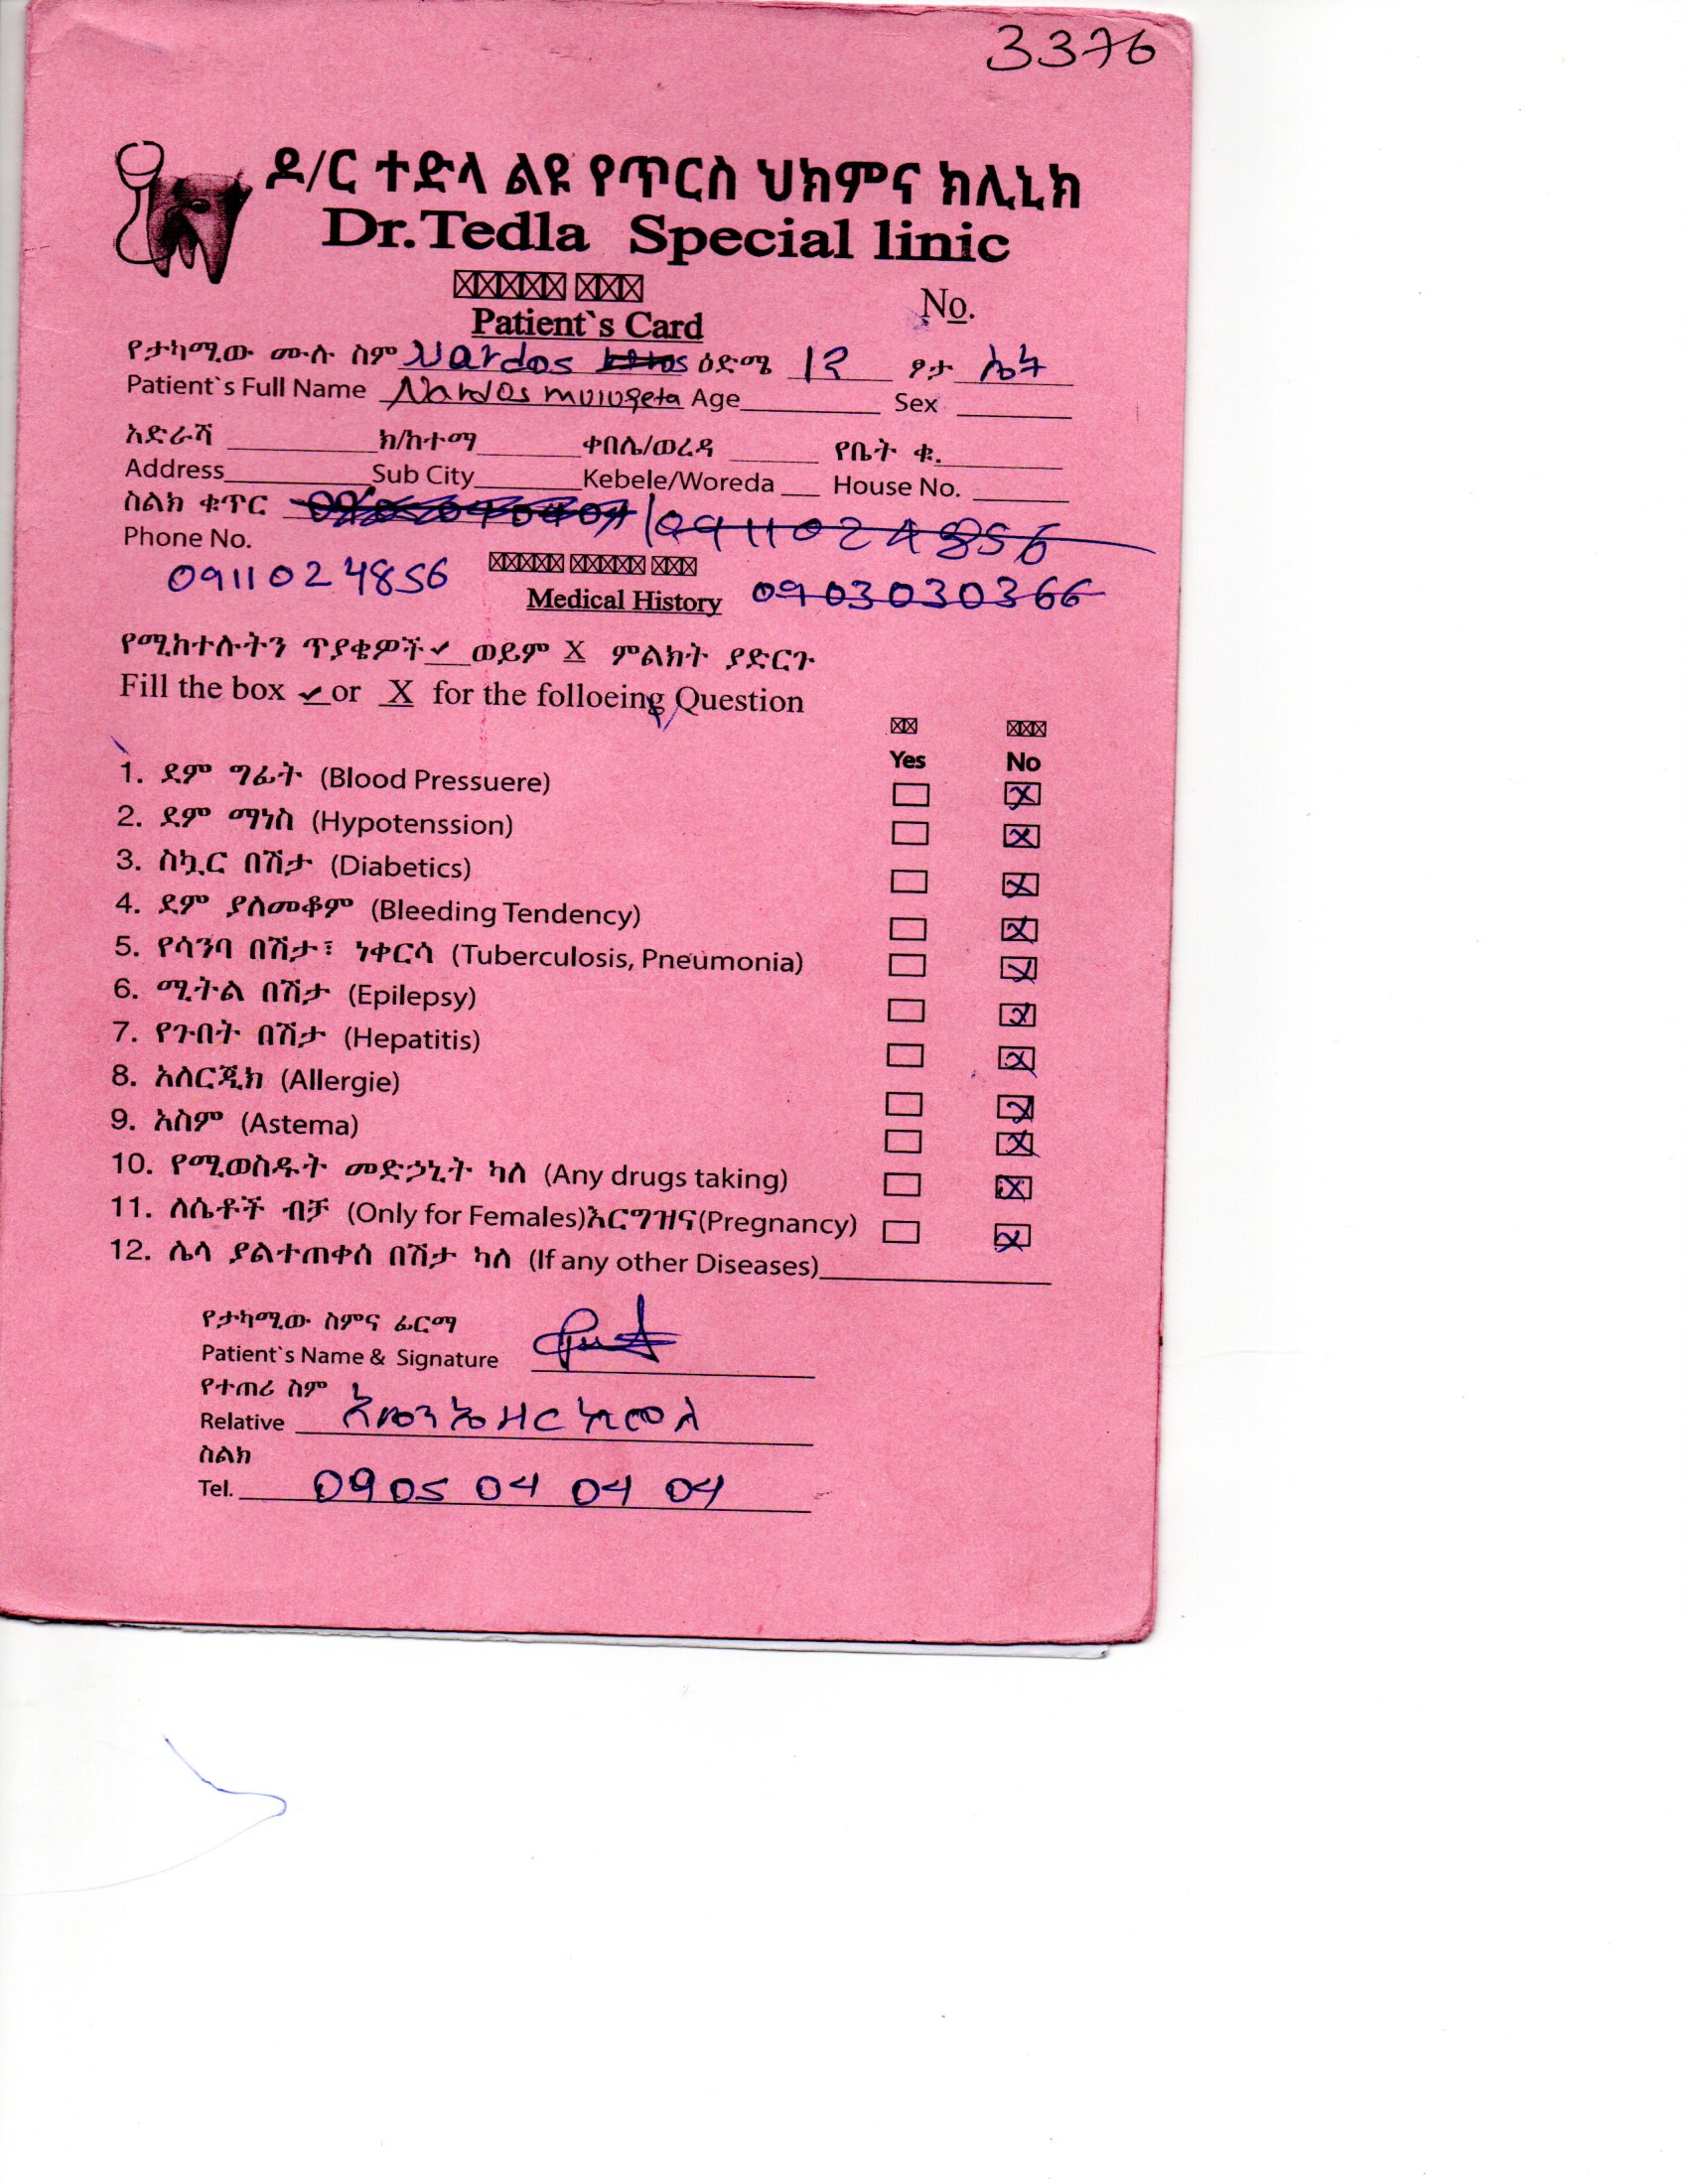 3376
ዶ/ር ተድላ ልዩ የጥርስ ህክምና ክሊኒክ
Dr.Tedla Special linic
No.
Patient`s Card
የታካሚው ሙሉ ስም Nardos ዕድሜ 12 ፆታ ሴት
Patient`s Full Name Nardos mulugeta Age Sex
አድራሻ ክ/ከተማ ቀበሌ/ወረዳ የቤት ቁ.
Address Sub City Kebele/Woreda House No.
ስልክ ቁጥር 0911024856
Phone No.
0911024856
Medical History 0903030366
የሚከተሉትን ጥያቄዎች ✓ ወይም X ምልክት ያድርጉ
Fill the box ✓ or X for the folloeing Question
Yes No
1. ደም ግፊት (Blood Pressuere) X
2. ደም ማነስ (Hypotenssion) X
3. ስኳር በሽታ (Diabetics) X
4. ደም ያለመቆም (Bleeding Tendency) X
5. የሳንባ በሽታ፣ ነቀርሳ (Tuberculosis, Pneumonia) X
6. ሚትል በሽታ (Epilepsy) X
7. የጉበት በሽታ (Hepatitis) X
8. አለርጂክ (Allergie) X
9. አስም (Astema) X
10. የሚወስዱት መድኃኒት ካለ (Any drugs taking) X
11. ለሴቶች ብቻ (Only for Females)እርግዝና(Pregnancy) X
12. ሌላ ያልተጠቀሰ በሽታ ካለ (If any other Diseases)
የታካሚው ስምና ፊርማ
Patient`s Name & Signature
የተጠሪ ስም
Relative
ስልክ
Tel. 0905 04 04 04